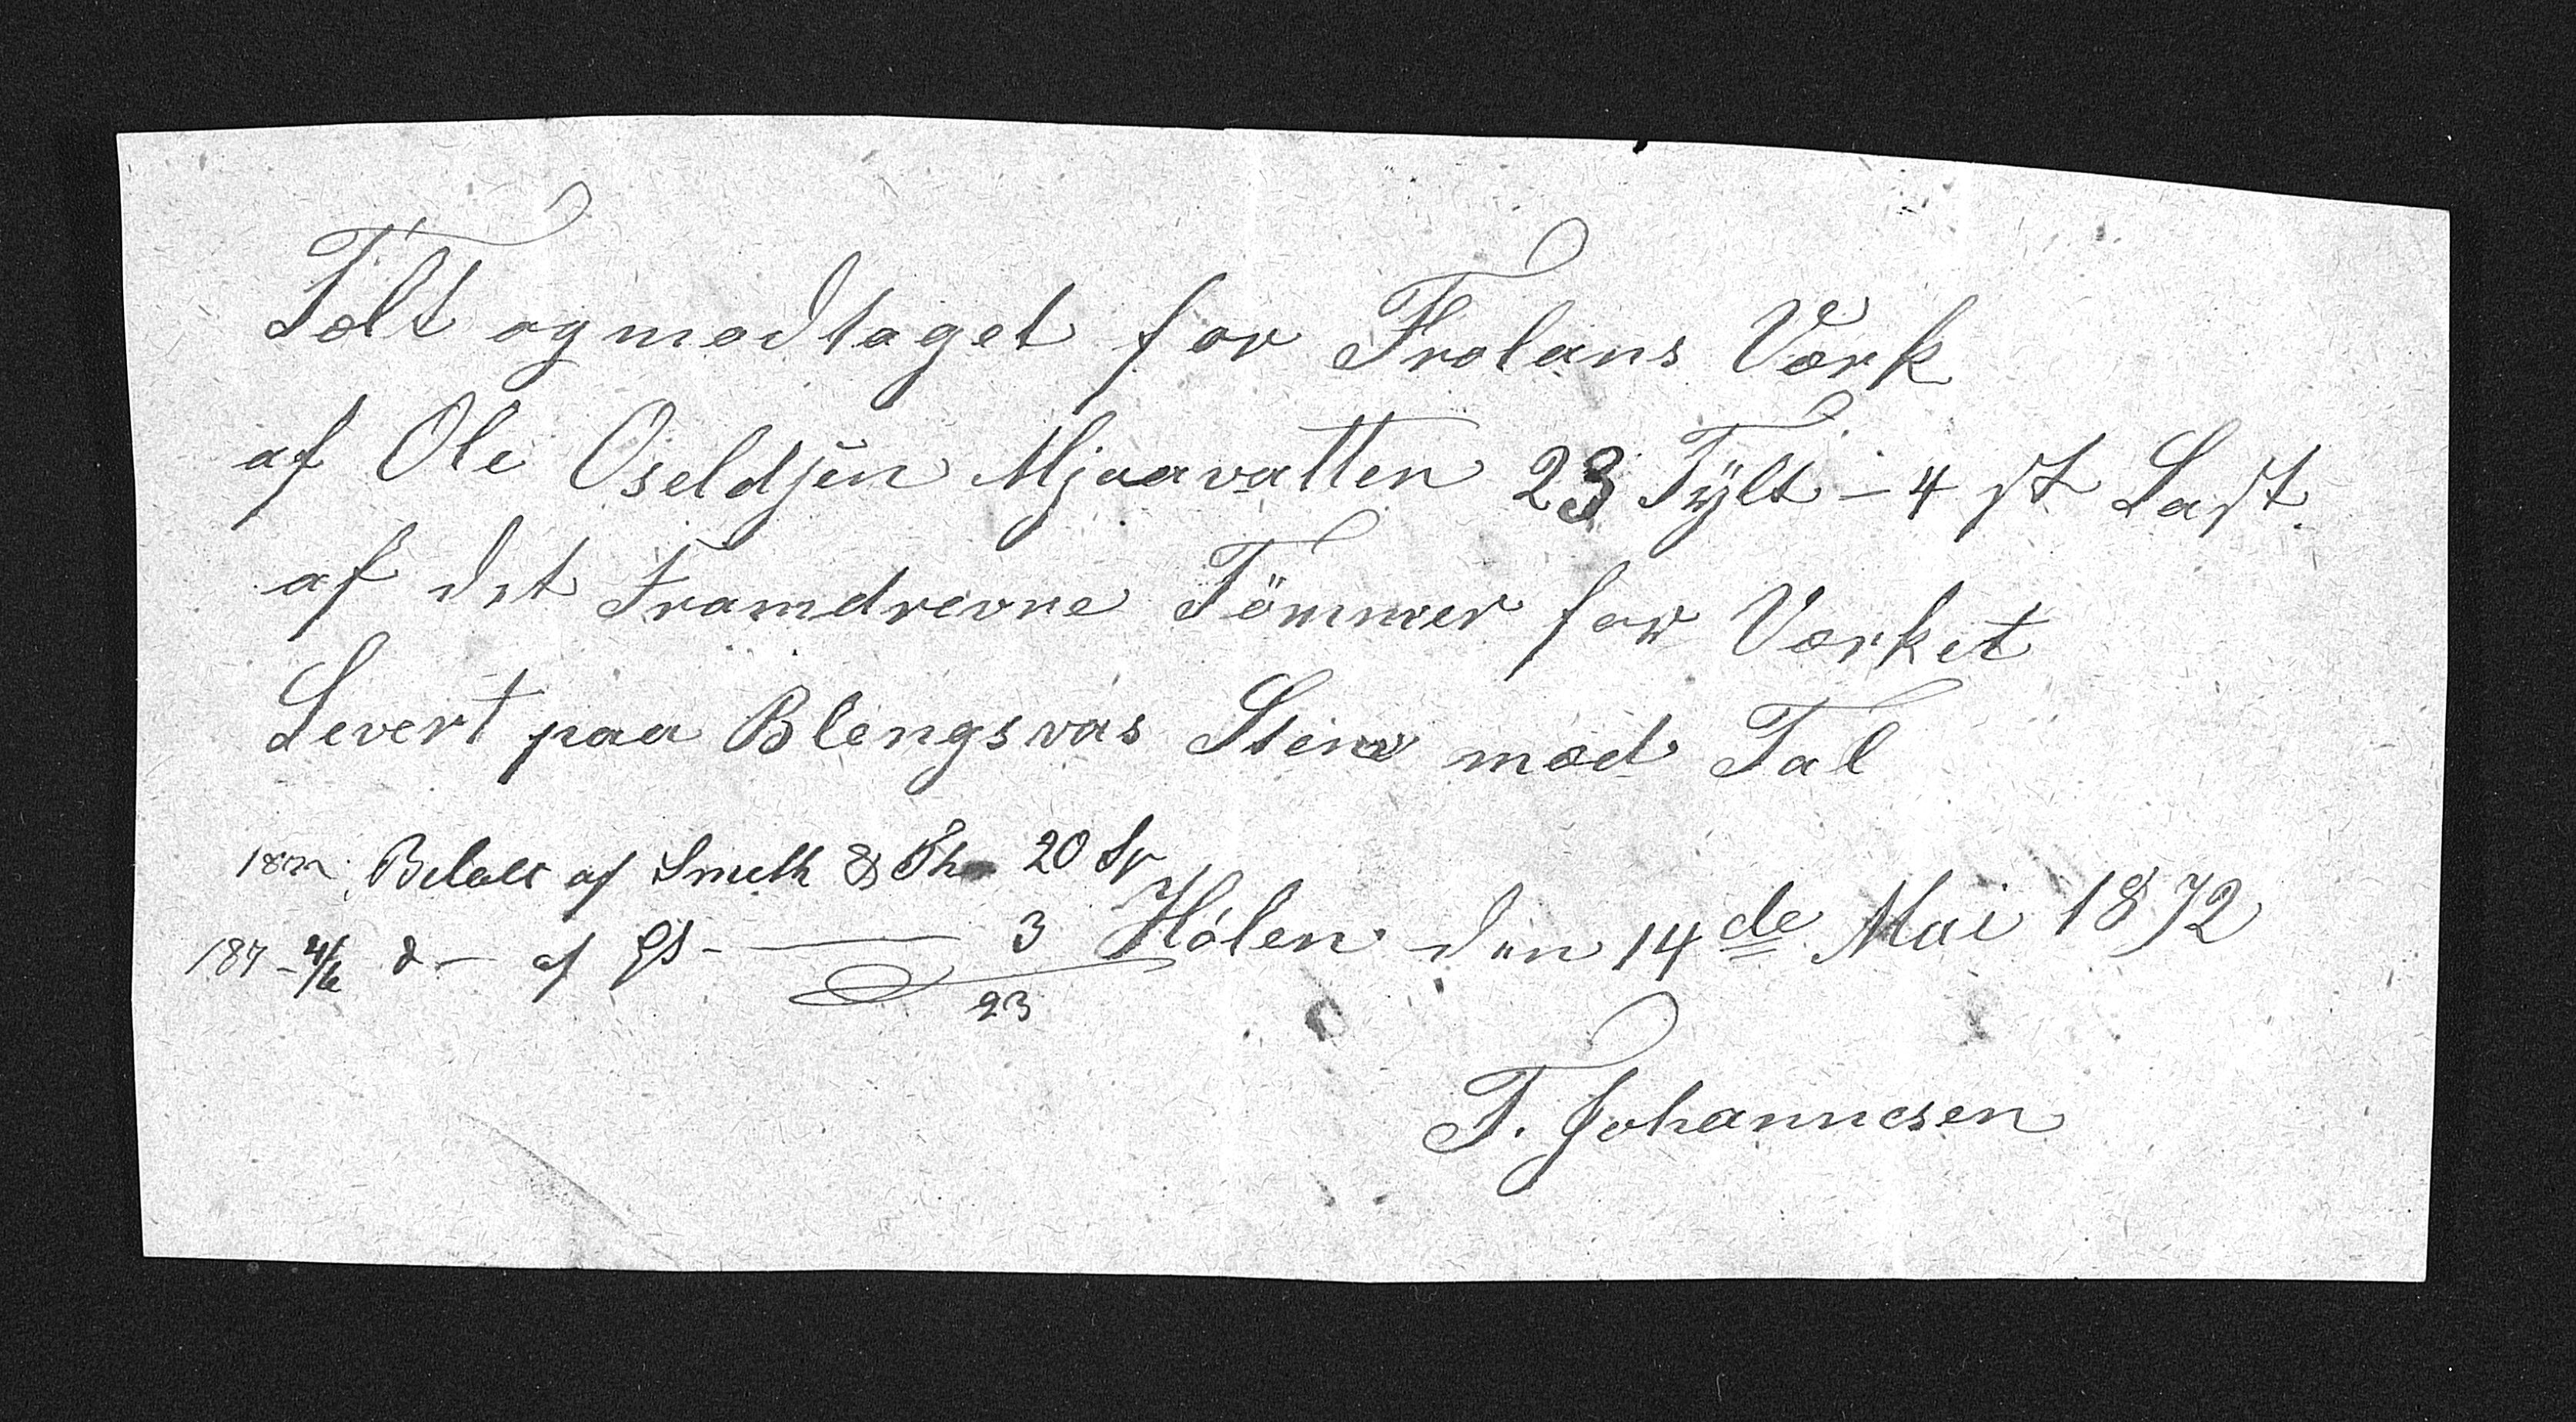 Tælt og modtaget for Frolans Værk
af Ole Oseldjen Mjaavatten 23 Tÿlt – 4 st Last
af det Framdrevne Tömmer for Værket
Levert paa Blengsvas Stene mæd Tal
1872 Betalt af Smith & Th 20 Sp
187 – 4/6 d – af 3
23
Hólen den 14de Mai 1872
T. Johannesen